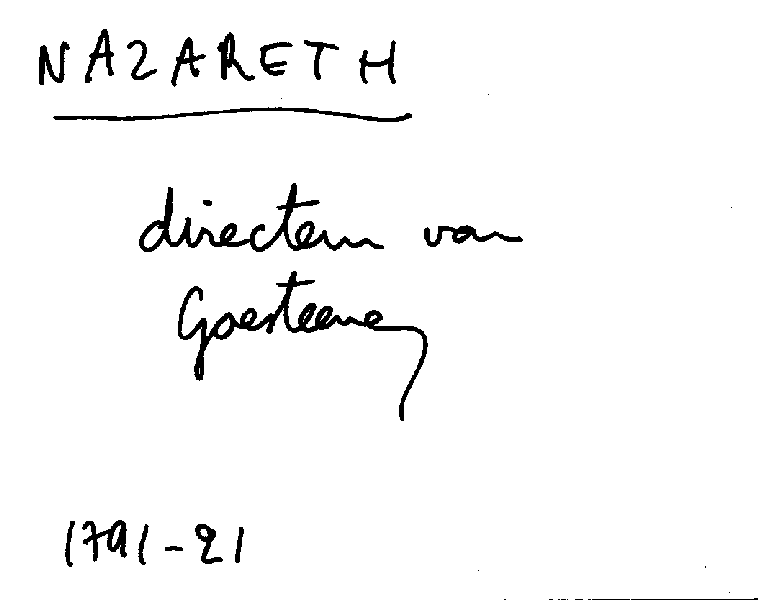 NAZARETH
directeur van
Goesteene
1791-21